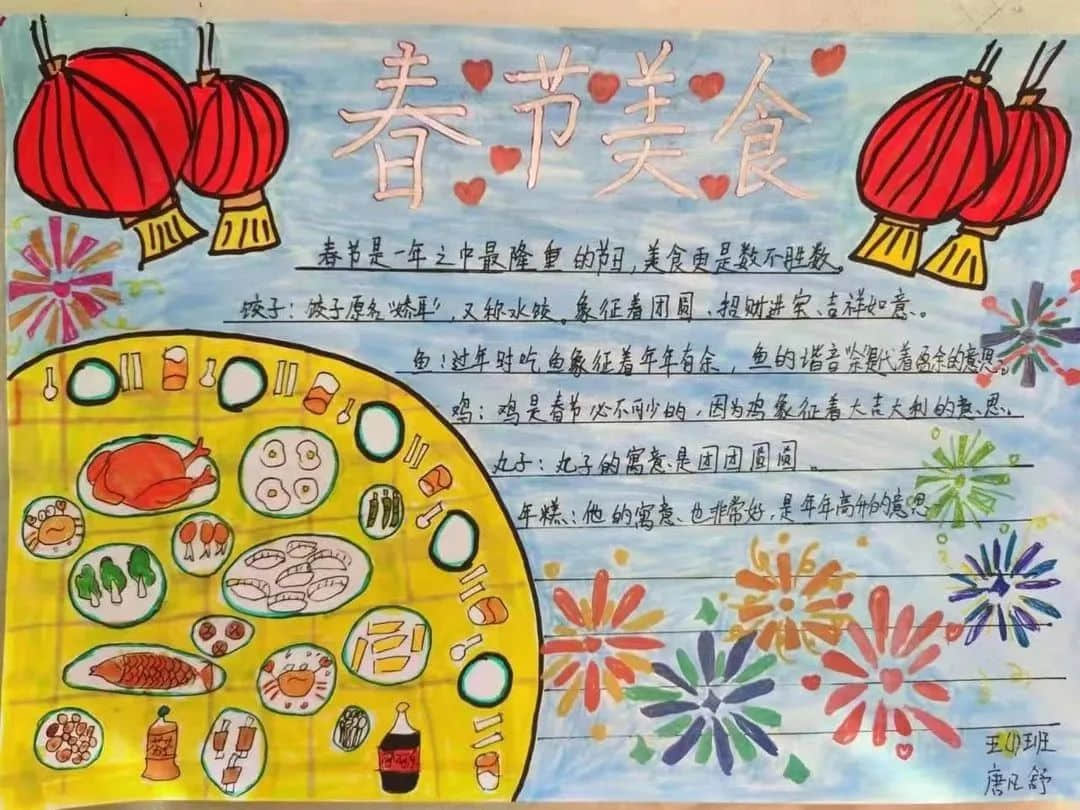 春节美食
春节是一年之中最隆重的节日,美食更是数不胜数。
饺子:饺子原名"娇耳",又称水饺。象征着团圆、招财进宝、吉祥如意。
鱼:过年时吃鱼象征着年年有余,鱼的谐音余更代着富余的意思。
鸡:鸡是春节必不可少的,因为鸡象征着大吉大利的意思。
丸子:丸子的寓意是团团圆圆。
年糕:他的寓意也非常好,是年年高升的意思
五(1)班
唐凡舒